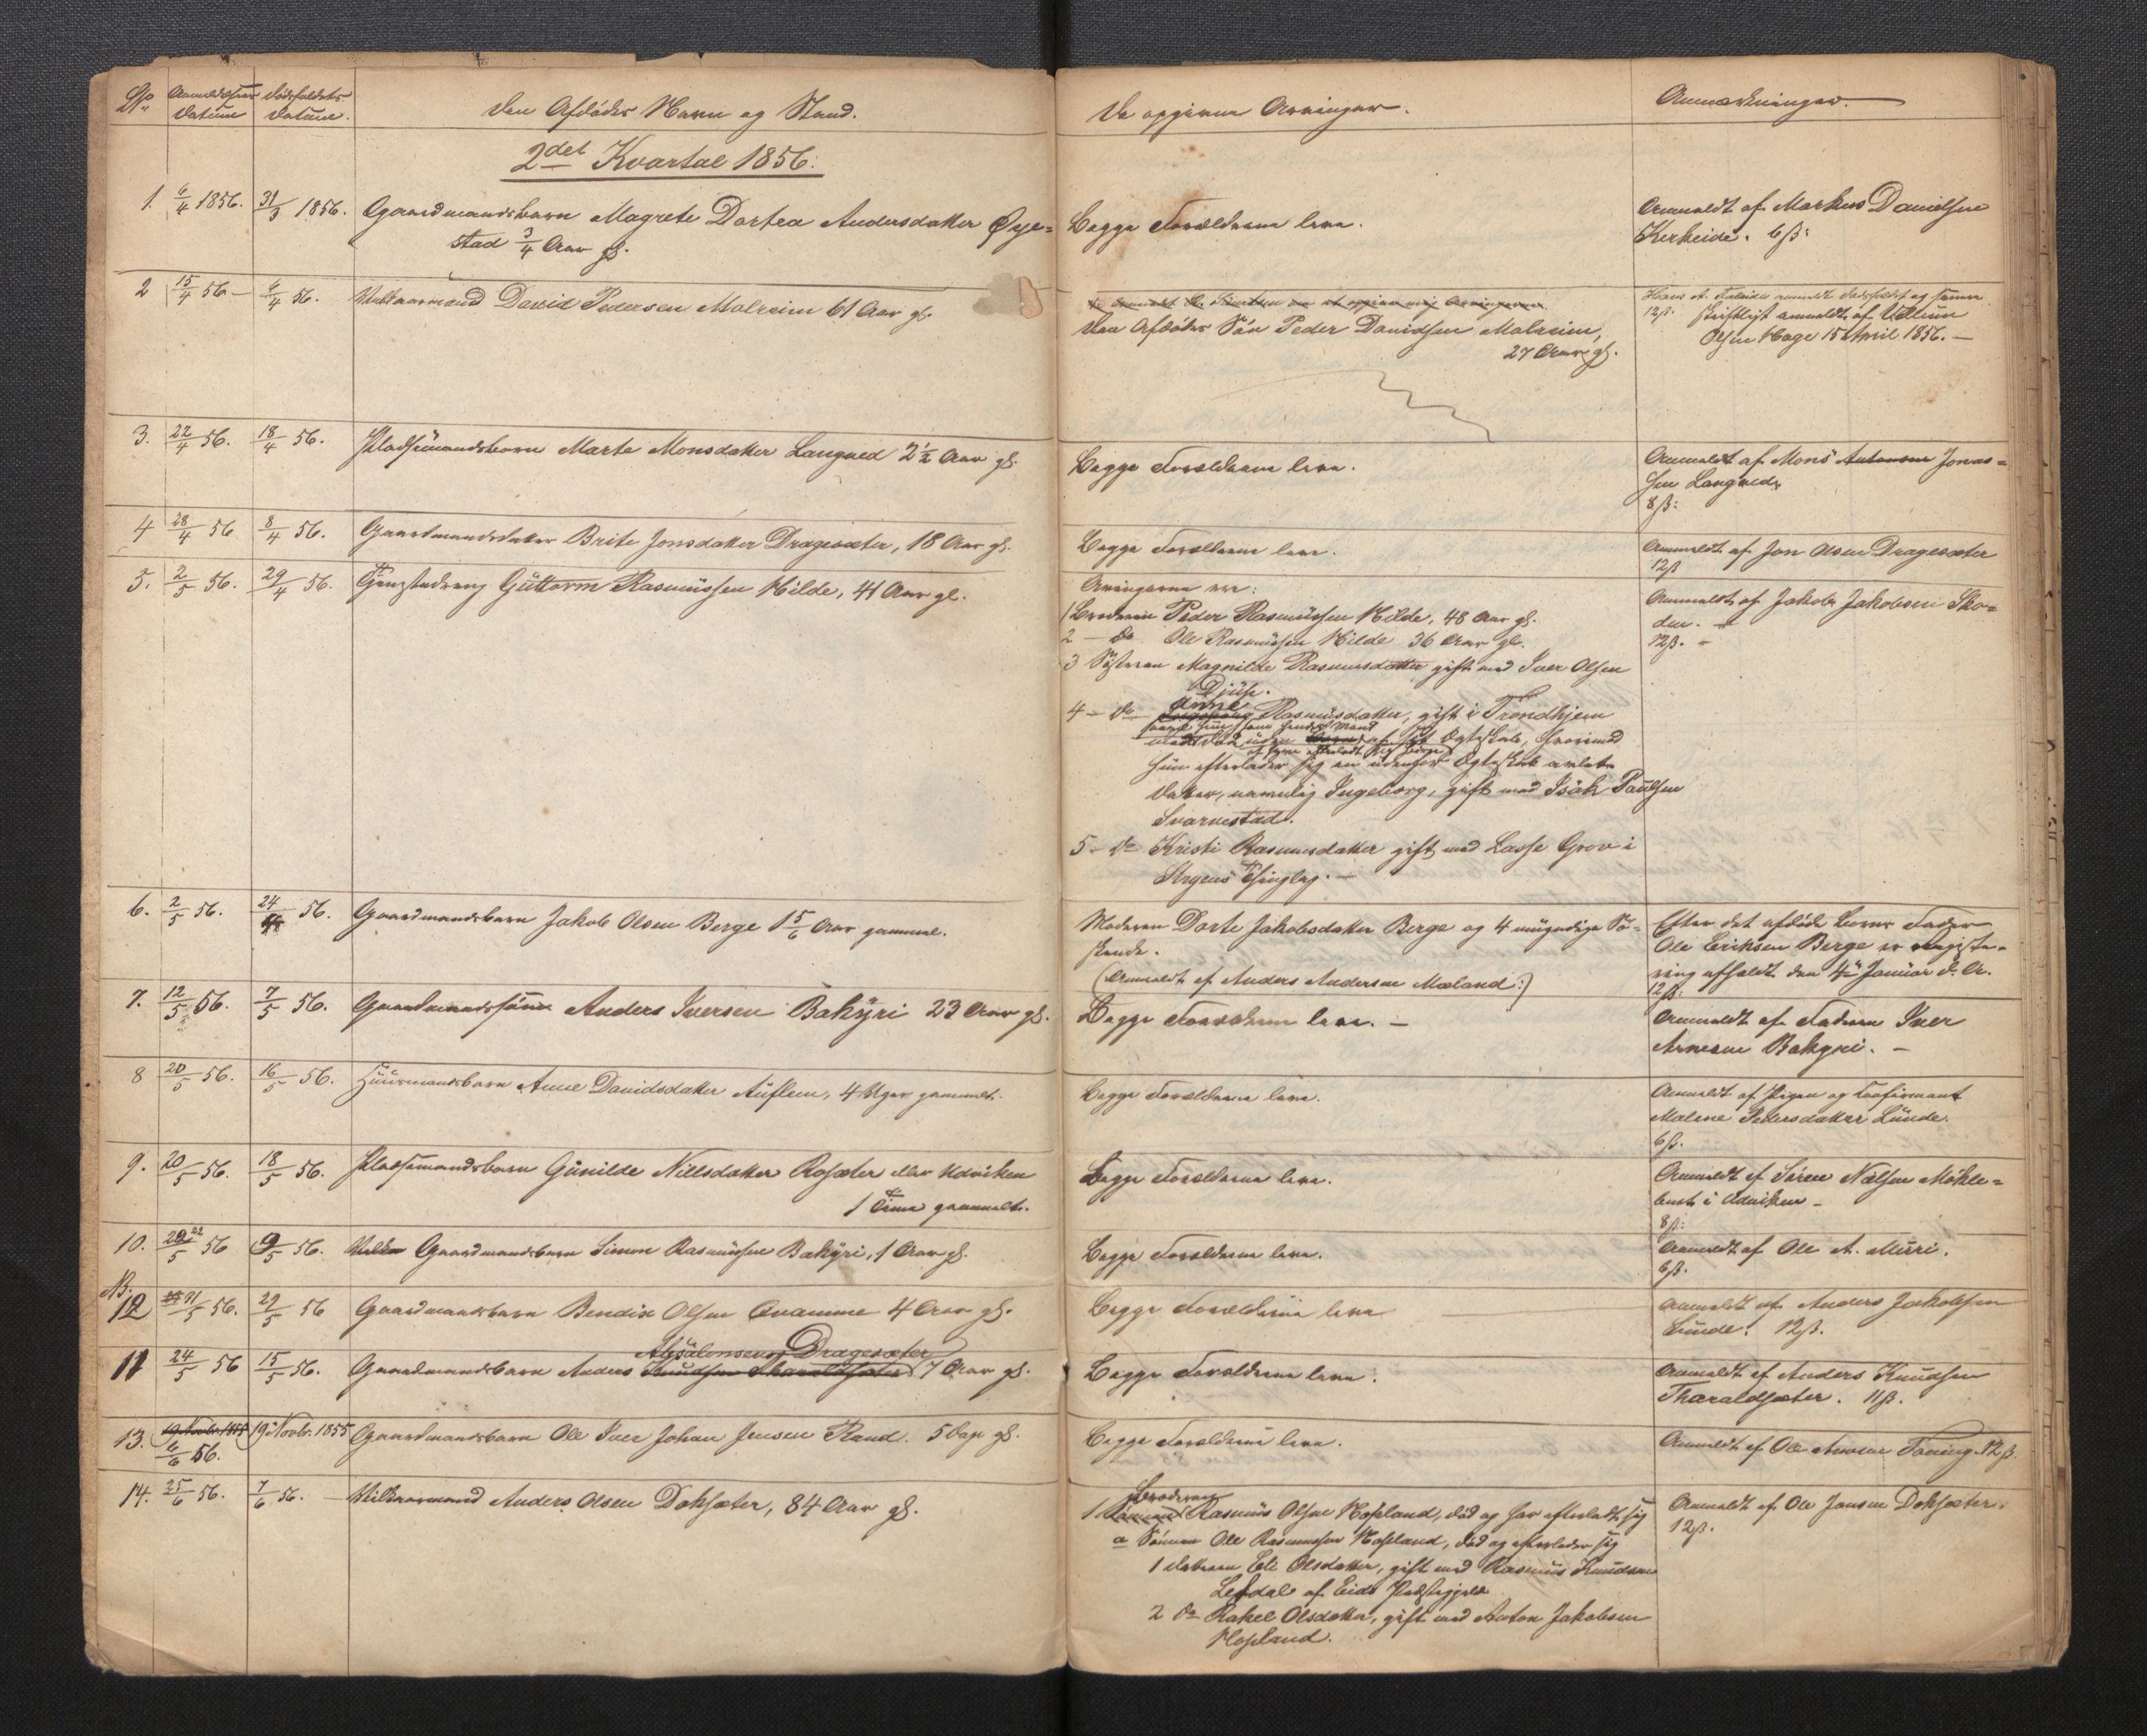 No. Anmeldelsens Datum Dødsfaldets Datum. Den Afdødes Navn og Stand. De opgivne Arvinger. Anmærkninger.
2det Kvartal 1856.
1. 6/4 1856. 31/3 1856. Gaardmandsbarn Magrete Dortea Andersdatter Øye=
stad 3/4 Aar gl.
Begge Forældrene leve.
Anmeldt af Markus Danielsen
Kirkeide. 6 ß:
2 15/4 56 – 6/4 56. Vilkaarmand David Pedersen Malreim 61 Aar gl.
Den Afdødes Søn Peder Davidsen Malreim,
27 Aar gl.
Hans A. anmeldt dødsfaldet og senere
12 ß. skriftligt anmeldt af Villum
Olsen Hage 15 April 1856. –
3. 22/4 56. 18/4 56. Pladsemandsbarn Marte Monsdatter Langved 2 1/2 Aar gl.
Begge Forældrene leve.
Anmeldt af Mons Antonsen Jonas=
sen Langved,
8 ß:
4 28/4 56 8/4 56. Gaardmandsdatter Brite Jonsdatter Dragesæter, 18 Aar gl.
Begge Forældrene leve.
Anmeldt af Jon Olsen Dragesæter
12 ß
5. 2/5 56. 29/4 56. Guttorm Rasmussen Hilde, 41 Aar gl.
Arvingerne ere:
1 Broderen Peder Rasmussen Hilde, 48 Aar gl.
2 – do Ole Rasmussen Hilde 36 Aar gl.
3 Søsteren Magnilde Rasmusdatter gift med Iver Olsen
Djuse.
4 – do Anne Rasmusdatter, gift i Trondhjem
som hendes Mand
død uden af sit Ægteskab, hvorimod
hun efterlader sig en udenfor Ægteskab avlet
Datter, navnlig Ingeborg, gift med Isak Paulsen
Svarvestad.
5 – do Kristi Rasmusdatter gift med Lasse Grov i
Stryens Thinglag. –
Anmeldt af Jakob Jakobsen Sko=
den. –
12 ß. –
6. 2/5 56. 24/4 56. Gaardmandsbarn Jakob Olsen Berge 1 5/6 Aar gammel.
Moderen Dorte Jakobsdatter Berge og 4 umyndige Sø=
skende.
(Anmeldt af Anders Andersen Mæland:)
Efter det afdøde Barns Fader
Ole Eriksen Berge er Registe=
ring afholdt den 4de Januar d. A.
12 ß:
7. 12/5 56. 7/5 56. Gaardmandssøn Anders Iversen Bakyri 23 Aar gl.
Begge Forældrene leve. –
Anmeldt af Faderen Iver
Arnesen Bakyri. –
8 20/5 56. 16/5 56. Huusmandsbarn Anne Davidsdatter Auflem, 4 Uger gammelt.
Begge Forældrene leve.
Anmeldt af Pigen og Confirmant
Malene Pedersdatter Lunde.
6 ß.
9. 20/5 56. 18/5 56. Pladsemandsbarn Gunilde Nillsdatter Rosæter eller Udviken
1 Time gammelt.
Begge Forældrene leve.
Anmeldt af Søren Nilsen Mykle=
bust i Udviken –
8 ß:
10. 22/5 56 9/5 56. Gaardmandsbarn Simon Rasmussen Bakyri, 1 Aar gl.
Begge Forældrene leve.
Anmeldt af Ole A. Muri.
6 ß.
NB.
12 31/5 56. 29/5 56 Gaardmandsbarn Bendix Olsen Qvamme 4 Aar gl.
Begge Forældrene leve
Anmeldt af Anders Jakobsen
Lunde. 12 ß.
Absalonsen Dragesæter
11 24/5 56 15/5 56. Gaardmandsbarn Anders Knudsen Tharaldsæter 7 Aar gl.
Begge Forældrene leve.
Anmeldt af Anders Knudsen
Tharaldsæter. 11 ß.
13. 19 Novbr. 1855 19 Novbr. 1855 Gaardmandsbarn Ole Iver Johan Jensen Rand. 5 Dage gl.
6/6 56.
Begge Forældrene leve.
Anmeldt af Ole Arnesen Taning. 12 ß.
14. 25/6 56. 7/6 56. – Vilkaarmand Anders Olsen Doksæter, 84 Aar gl.
Broderen
1 Sønnen Rasmus Olsen Hopland, død og har efterladt sig
a Sønnen Ole Rasmussen Hopland, død og efterlader sig
1 Datteren Eli Olsdatter, gift med Rasmus Knudsen
Lefdal af Eids Præstegjeld
2 do Rakel Olsdatter, gift med Anton Jakobsen
Hopland.
Anmeldt af Ole Jonsen Doksæter.
12 ß.